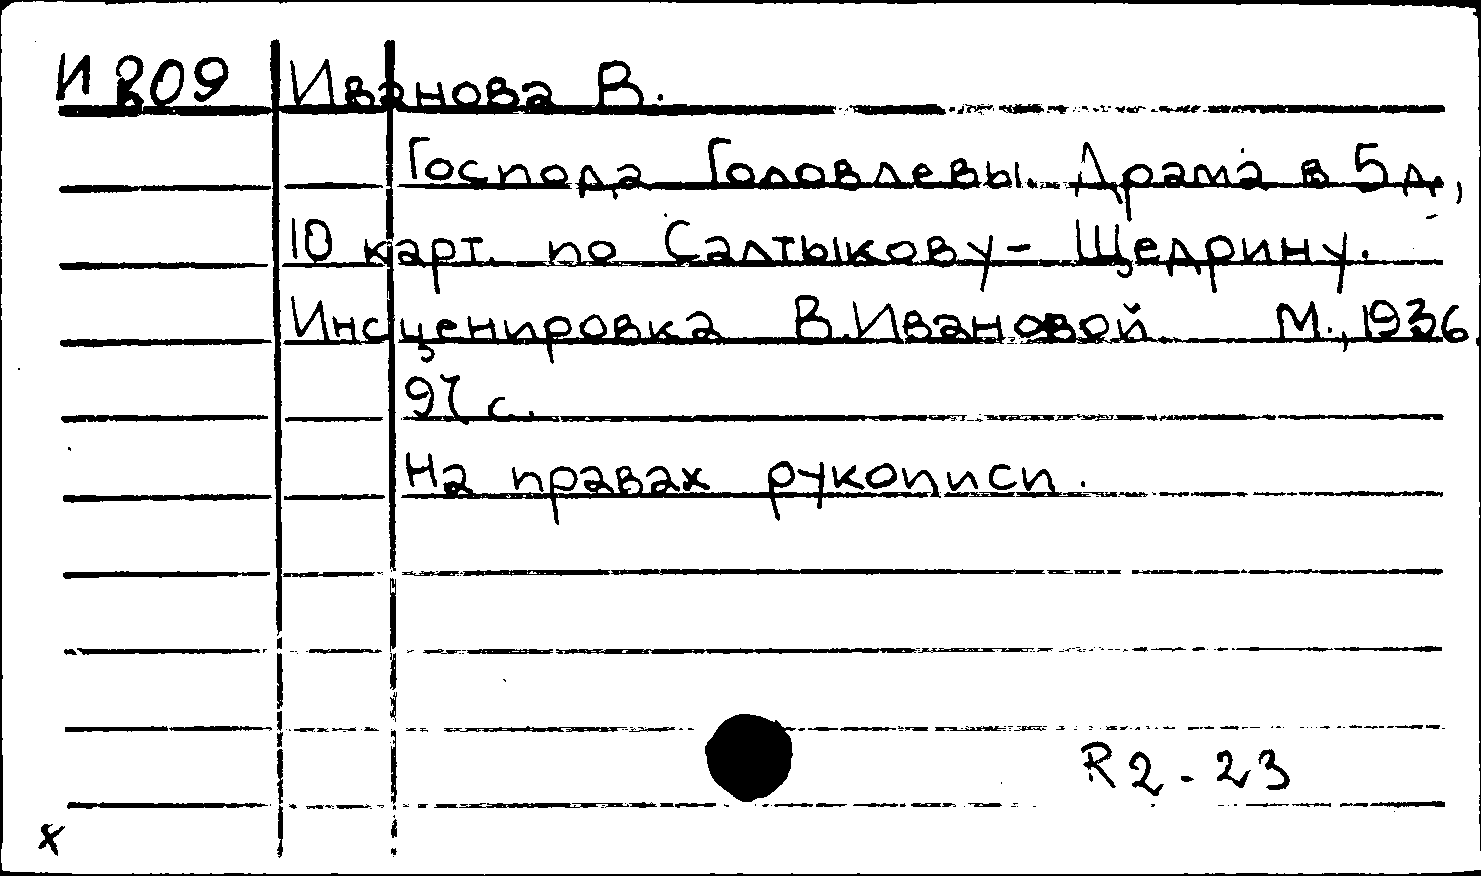 И 809 Иванова В.
Господа Головлевы. Драма в 5 д.,
10 карт. по Салтыкову- Щедрину.
Инсценировка В.Ивановой М., 1936.
97 с.
На правах рукописи.
R2-23
х